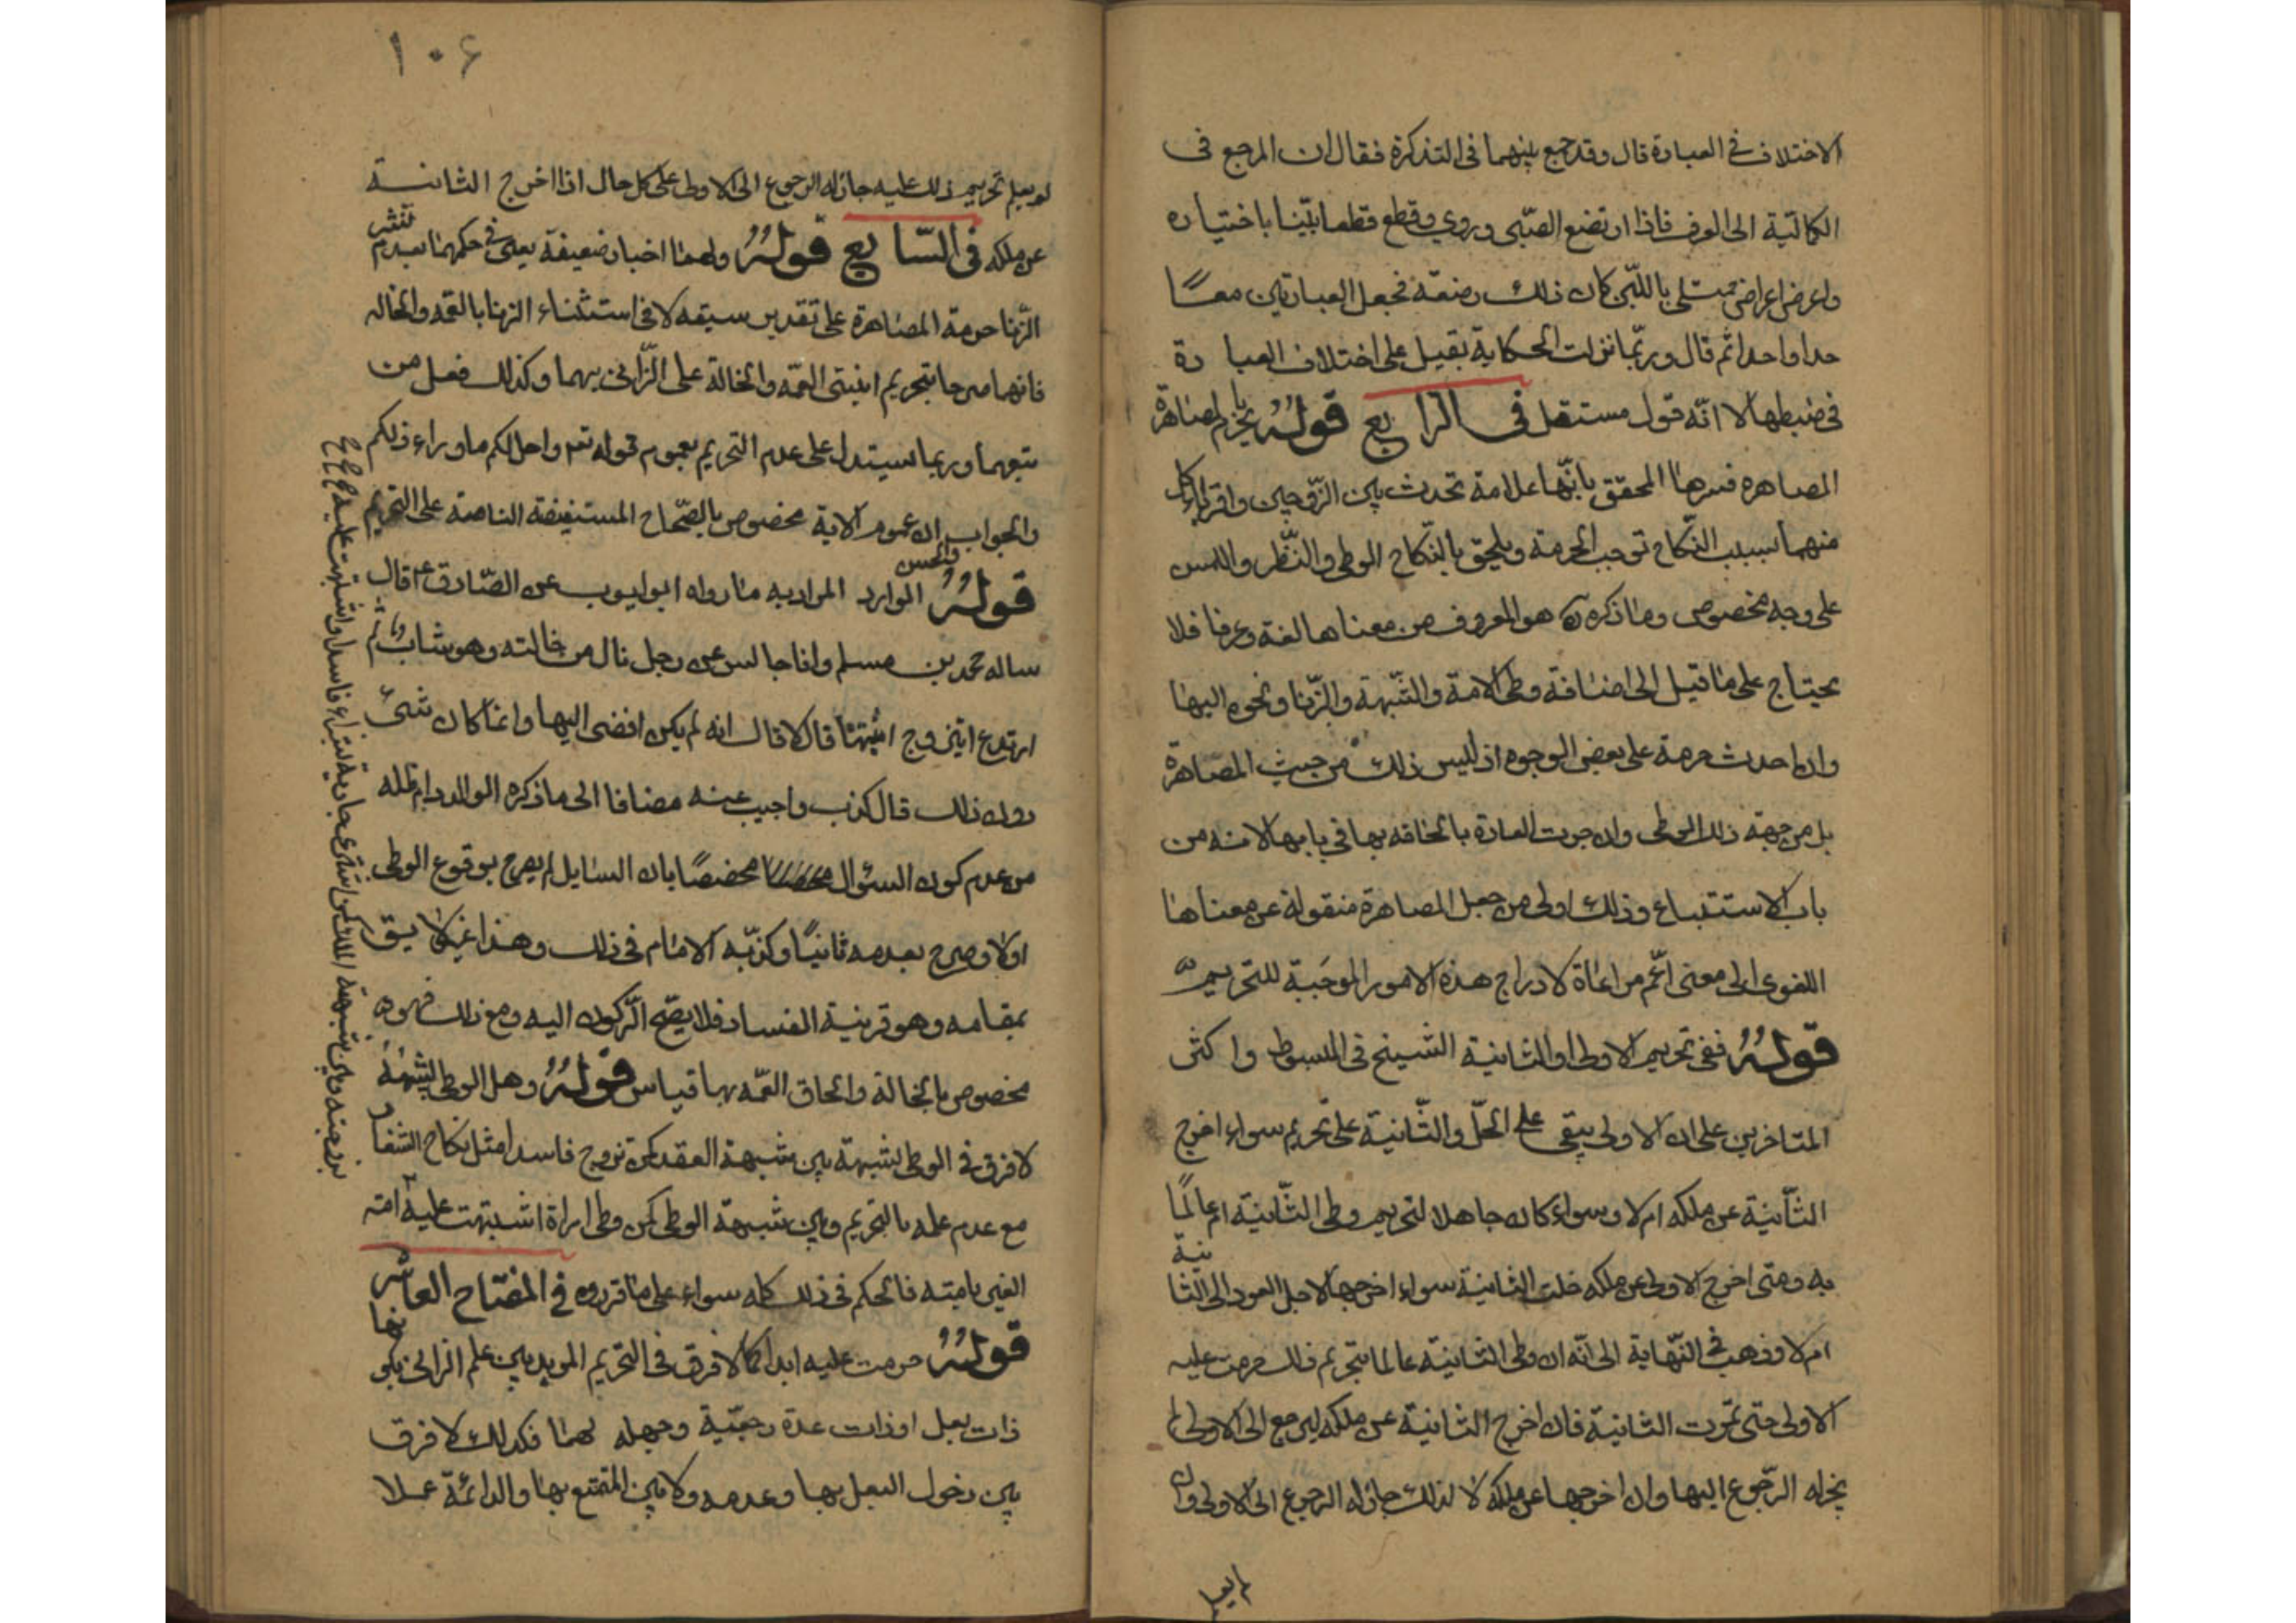 الاختلاف في العبارة قال وقد جمع بينهما في التذكرة فقال ان المرجع في
الكمالية الى العرف فاذا ارتضع الصّبى وروي وقطع قطعا بيّنا باختياره
واعرض اعراض ممتلى باللّبن كان ذلك رضعة فجعل العبارتين معًا
حدا واحدا ثم قال وربّما نزلت الحكاية بقيل على اختلاف العبا رة
في ضبطها لا انّه قول مستقل في الرا بع قولُهُ يحرم بالمصاهرة
المصاهره فسرها المحقق بانّها علامة تحدث بين الزّوجين واقرباء كل
منهما بسبب النّكاح توجب الحرمة ويلحق بالنّكاح الوطى والنّظر واللمس
على وجه مخصوص وما ذكره هو المعروف من معناها لغة وعرفا فلا
يحتاج على ما قيل الى اضافة وطى الامة والشّبهة والزّنا ونحوه اليها
وان احدث حرمة على بعض الوجوه اذ ليس ذلك من حيث المصاهرة
بل من جهة ذلك الوطى وان جرت العادة بالحاقه بها في بابها لانه من
باب الاستتباع وذلك اولى من جعل المصاهرة منقولة عن معناها
اللغوى الى معنى اعّم مراعاة لادراج هذه الامور الموجبة للتحريم
قولُهُ ففى تحريم الاولى او الثانية الشيخ في المبسوط وا كثر
المتاخرين على ان الاولى يبقى على الحلّ والثّانية على تحريم سواء اخرج
الثّانية عن ملكه ام لا وسواء كان جاهلا لتحريم وطى الثّانية ام عالمًا
به ومتى اخرج الاولى عن ملكه حلت الثانية سواء اخرجها لاجل العود الى الثانية
ام لا وذهب في النّهاية الى انّه ان وطى الثانية عالما بتحريم ذلك حرمت عليه
الاولى حتى تموت الثانية فان اخرج الثانية عن ملكه ليرجع الى الاولى لم
يجز له الرّجوع اليها وان اخرجها عن ملكه لا لذلك جاز له الرجوع الى الاولى وان
لم يعلم
١٠۶
لم يعلم تحريم ذلك عليه جاز له الرجوع الى الاولى على كل حال اذا اخرج الثانية
عن ملكه في السّا بع قولُهُ ولهما اخبار ضعيفة يعنى في حكمهما بعدم نشر
الزّنا حرمة المصاهرة على تقدير سبقه لا في استثناء الزنا بالعمّه والخاله
فانهما صرحا بتحريم ابنتى العمّه والخالة على الزّانى بهما وكذلك فعل من
تبعهما وربما يستدل على عدم التحريم بعموم قوله تع واحل لكم ما وراء ذلكم
والجواب ان عموم الاية مخصوص بالصّحاح المستفيضة الناصة على التحريم
قولُهُ والحسن الموارد المراد به ما رواه ابو ايوب عن الصّادق ع قال
ساله محمد بن مسلم وانا جالس عن رجل نال من خالته وهو شاب ثم
ارتدع ايتزوج ابنتها قال لا قال انه لم يكن افضى اليها وانما كان شئ
دون ذلك قال كذب واجيب عنه مضافا الى ما ذكره الوالد دام ظله
من عدم كون السئوال مخصصًا بان السايل لم يصرح بوقوع الوطى
اولا وصرح بعدمه ثانيًا وكذبّه الامام في ذلك وهذا غير لايق
بمقامه وهو قرينة الفساد فلا يصّح الرّكون اليه ومع ذلك فهو
مخصوص بالخالة والحاق العمّه بها قياس قولُهُ وهل الوطى لشبهة
لا فرق في الوطى لشبهة بين شبهة العقد كمن تزوج فاسدا مثل نكاح الشغار
مع عدم علمه بالتحريم وبين شبهة الوطى كمن وطى امراة اشتبهت عليه امته
الغير بامته فالحكم في ذلك كله سواء على ما قرروه في المفتاح العاشر
قولُهُ حرمت عليه ابدا كما لا فرق في التحريم الموبد بين علم الزانى بكونها
ذات بعل او ذات عدة رجعيّة وجهله لهما فكذلك لا فرق
بين دخول البعل بها وعدمه ولا بين المتمتع بها والدائمة عملا
بزوجته وبين شبهة الملك كمن اشترى جارية بشراء فاسدا واشتبهت عليه